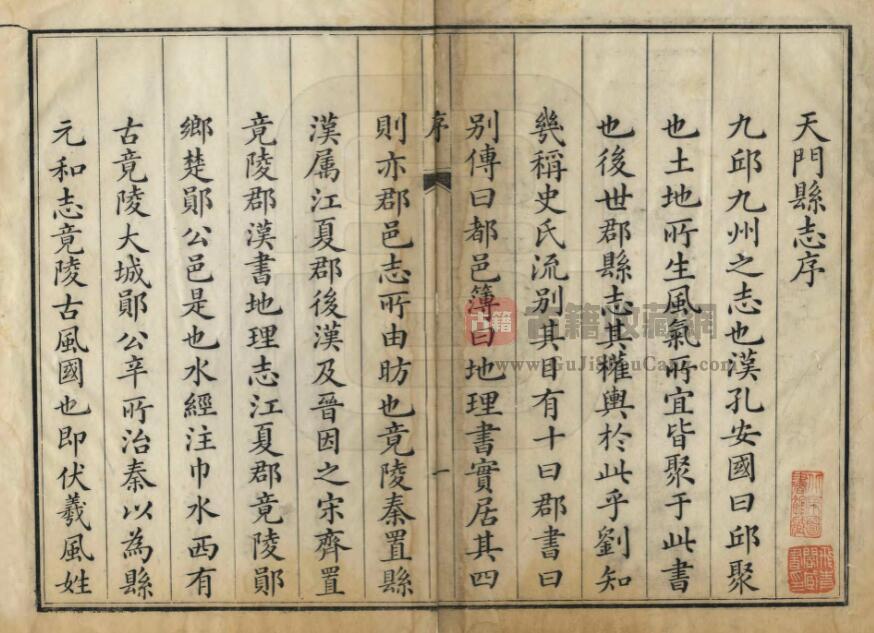 天門縣志序
九邱九州之志也漢孔安國曰邱聚
也土地所生風氣所宜皆聚于此書
也後世郡縣志其權輿於此乎劉知
幾稱史氏流別其目有十曰郡書曰
別傳曰都邑簿曰地理書實居其四
序
一
則亦郡邑志所由昉也竟陵秦置縣
漢屬江夏郡後漢及晉因之宋齊置
竟陵郡漢書地理志江夏郡竟陵鄖
鄉楚鄖公邑是也水經注巾水西有
古竟陵大城鄖公辛所治秦以為縣
元和志竟陵古風國也即伏羲風姓
古籍
古籍收藏網
www.GuJiShouCang.com